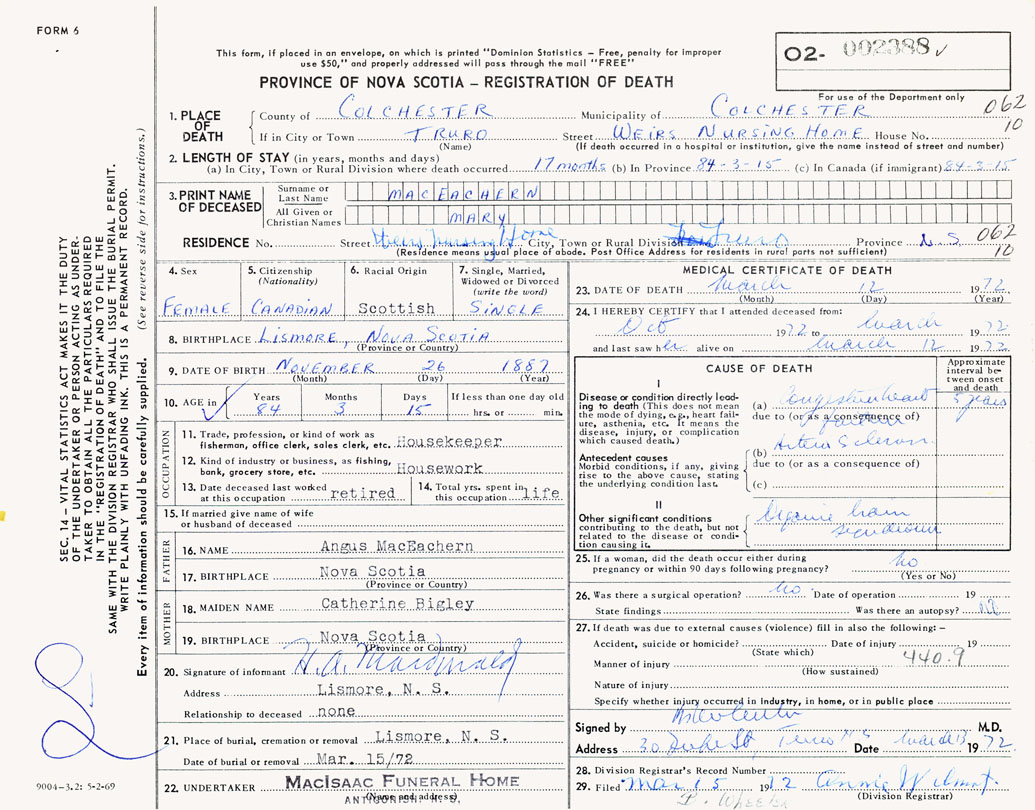 FORM 6
This form, if placed in an envelope, on which is printed "Dominion Statistics – Free, penalty for improper
use $50," and properly addressed will pass through the mail "FREE"
O2- 002388 ✓
PROVINCE OF NOVA SCOTIA – REGISTRATION OF DEATH
For use of the Department only
062
10
1. PLACE OF DEATH
County of COLCHESTER Municipality of COLCHESTER
If in City or Town TRURO Street WEIRS NURSING HOME House No.
(Name) (If death occurred in a hospital or institution, give the name instead of street and number)
2. LENGTH OF STAY (in years, months and days)
(a) In City, Town or Rural Division where death occurred 17 months (b) In Province 84-3-15 (c) In Canada (if immigrant) 84-3-15
3. PRINT NAME OF DECEASED
Surname or Last Name MACEACHERN
All Given or Christian Names MARY
RESIDENCE No. Street Weirs Nursing Home City, Town or Rural Division Truro Province N.S. 062
(Residence means usual place of abode. Post Office Address for residents in rural parts not sufficient) 10
4. Sex
FEMALE
5. Citizenship (Nationality)
CANADIAN
6. Racial Origin
Scottish
7. Single, Married, Widowed or Divorced (write the word)
SINGLE
8. BIRTHPLACE LISMORE, NOVA SCOTIA
(Province or Country)
9. DATE OF BIRTH NOVEMBER 26 1887
(Month) (Day) (Year)
10. AGE in Years Months Days If less than one day old
84 3 15 hrs. or min.
OCCUPATION
11. Trade, profession, or kind of work as fisherman, office clerk, sales clerk, etc. Housekeeper
12. Kind of industry or business, as fishing, bank, grocery store, etc. Housework
13. Date deceased last worked at this occupation retired
14. Total yrs. spent in this occupation life
15. If married give name of wife or husband of deceased
FATHER
16. NAME Angus MacEachern
17. BIRTHPLACE Nova Scotia
(Province or Country)
MOTHER
18. MAIDEN NAME Catherine Bigley
19. BIRTHPLACE Nova Scotia
(Province or Country)
20. Signature of informant H.A. MacDonald
Address Lismore, N. S.
Relationship to deceased none
21. Place of burial, cremation or removal Lismore, N. S.
Date of burial or removal Mar. 15/72
22. UNDERTAKER MACISAAC FUNERAL HOME
(Name and address)
ANTIGONISH N. S.
MEDICAL CERTIFICATE OF DEATH
23. DATE OF DEATH March 12 1972
(Month) (Day) (Year)
24. I HEREBY CERTIFY that I attended deceased from:
Oct 1972 to March 1972
and last saw her alive on March 12 1972
CAUSE OF DEATH
Approximate interval between onset and death
I
Disease or condition directly leading to death (This does not mean the mode of dying, e.g., heart failure, asthenia, etc. It means the disease, injury, or complication which caused death.)
(a) Congestive heart failure 5 years
due to (or as a consequence of)
Antecedent causes
Morbid conditions, if any, giving rise to the above cause, stating the underlying condition last.
(b)
due to (or as a consequence of)
(c)
II
Other significant conditions contributing to the death, but not related to the disease or condition causing it.
Organic brain syndrome
25. If a woman, did the death occur either during pregnancy or within 90 days following pregnancy? No
(Yes or No)
26. Was there a surgical operation? No Date of operation 19
State findings Was there an autopsy? No
27. If death was due to external causes (violence) fill in also the following:–
Accident, suicide or homicide? Date of injury 19
(State which)
440.9
Manner of injury
(How sustained)
Nature of injury
Specify whether injury occurred in industry, in home, or in public place
Signed by M.D.
Address 30 Duke St Truro N.S. Date March 13 1972
28. Division Registrar's Record Number
29. Filed Mar 15 1972 Annie Wilmot
(Division Registrar)
P. Wheeler
SEC. 14 – VITAL STATISTICS ACT MAKES IT THE DUTY
OF THE UNDERTAKER OR PERSON ACTING AS UNDER-
TAKER TO OBTAIN ALL THE PARTICULARS REQUIRED
IN THE "REGISTRATION OF DEATH" AND TO FILE THE
SAME WITH THE DIVISION REGISTRAR WHO SHALL ISSUE THE BURIAL PERMIT.
WRITE PLAINLY WITH UNFADING INK. THIS IS A PERMANENT RECORD.
Every item of information should be carefully supplied. (See reverse side for instructions.)
9004-3.2: 5-2-69